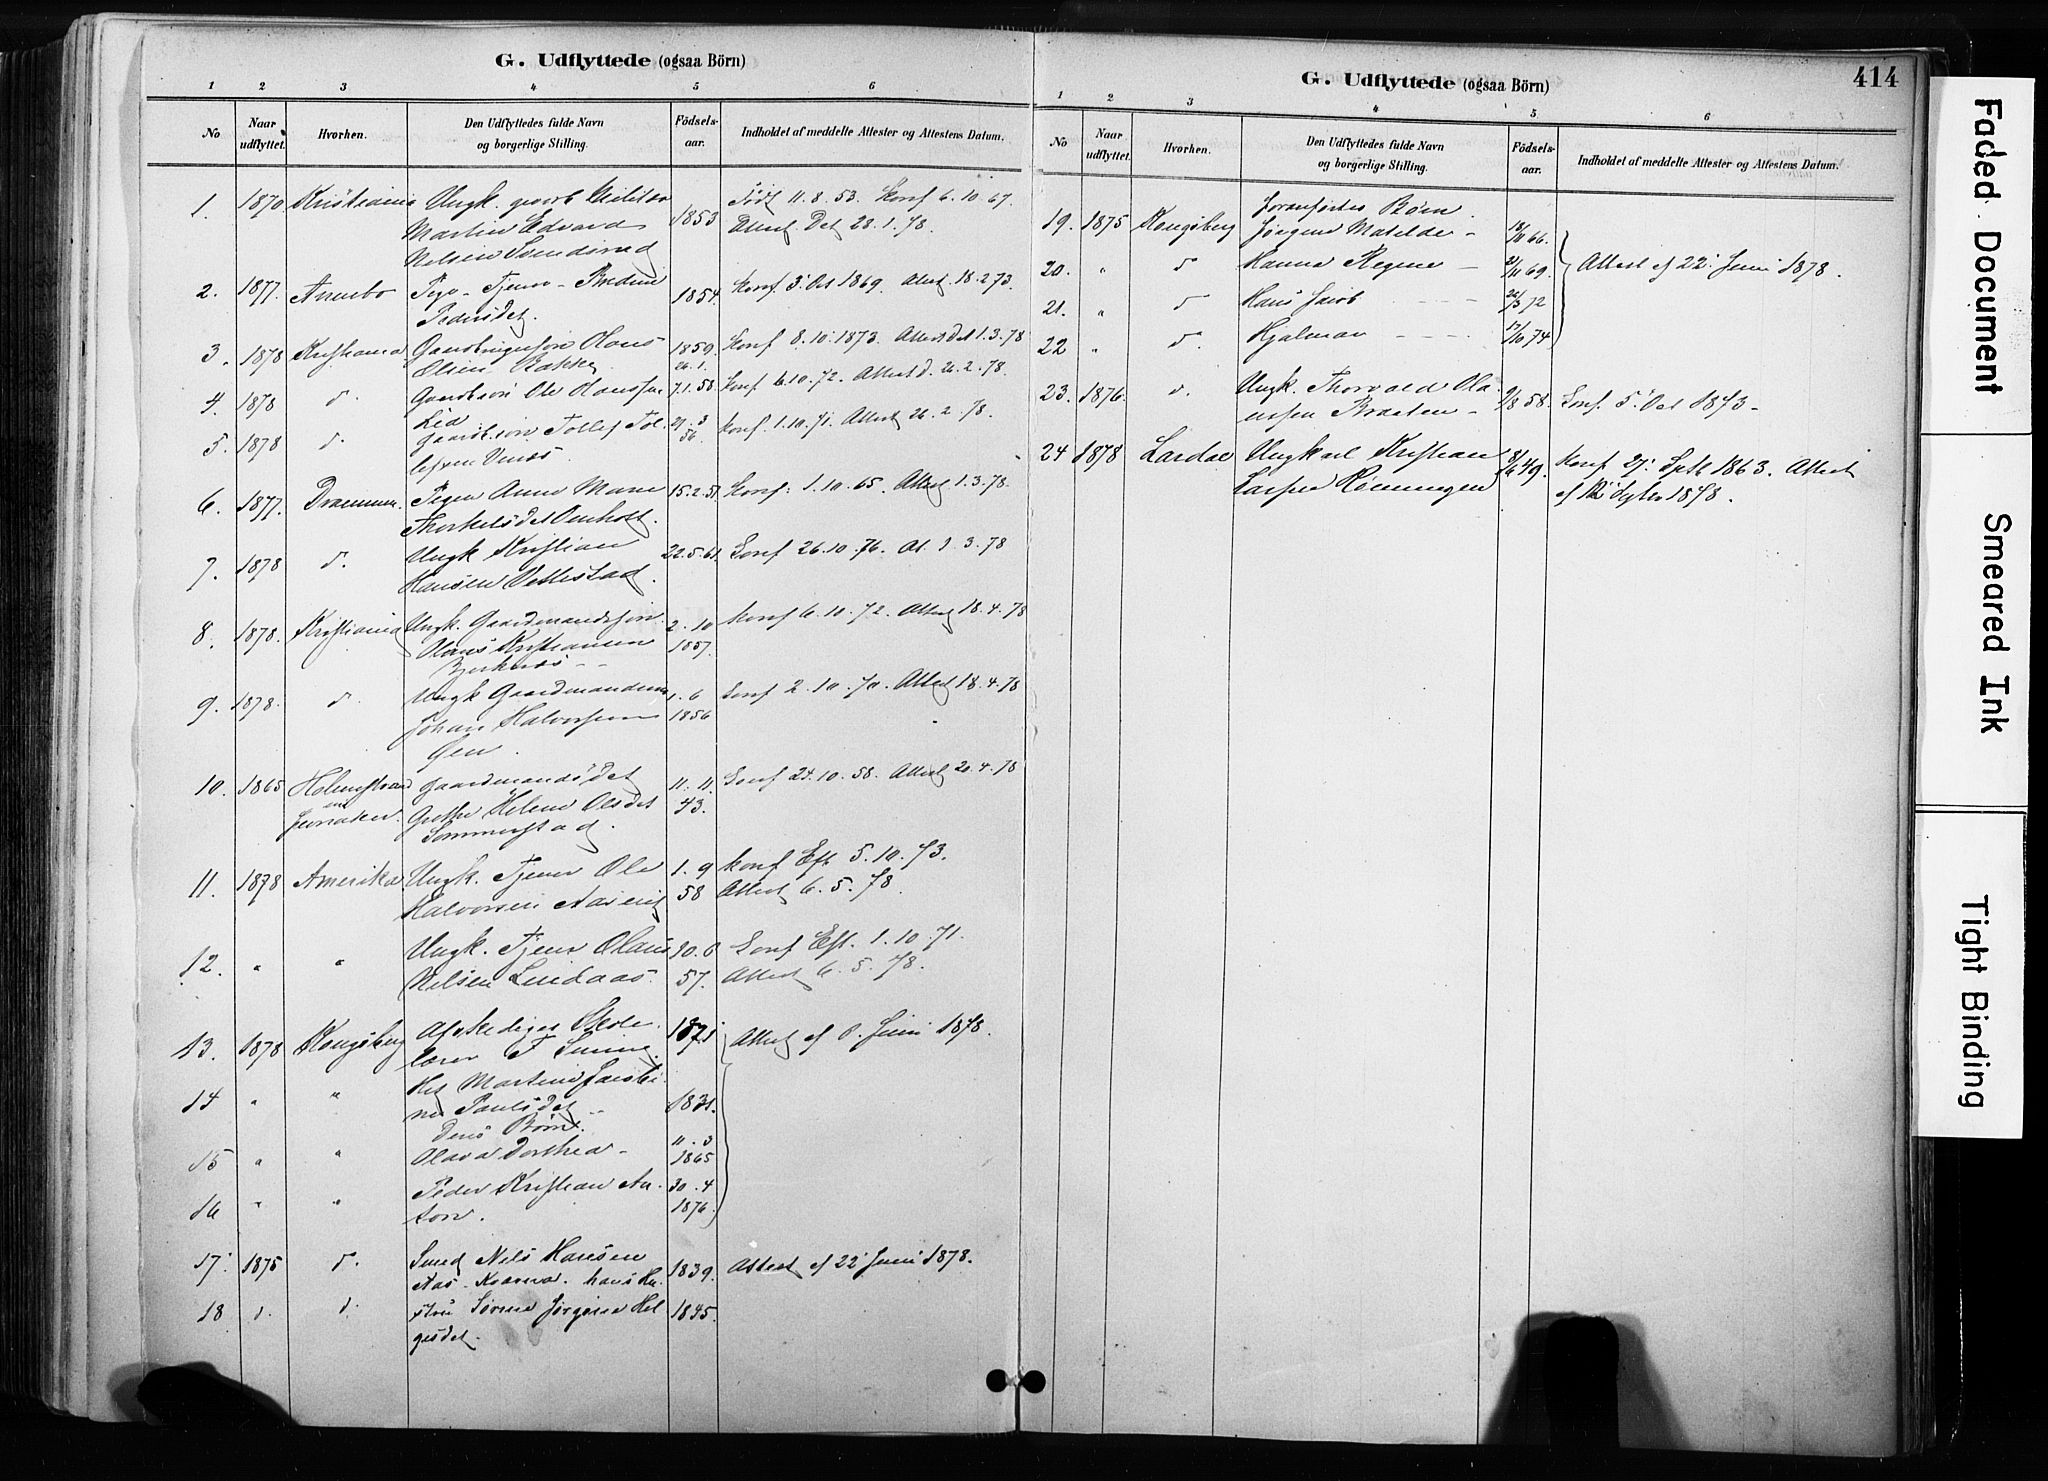 G. Udflyttede (ogsaa Börn)
1 2 3 4 5 6
No Naar udflyttet. Hvorhen. Den Udflyttedes fulde Navn og borgerlige Stilling. Födsels-aar. Indholdet af meddelte Attester og Attestens Datum.
1. 1870 Kristiania Ungk. 1853 Född 11.8.53. Konf 6.10.67.
Martin Edvard Attest Det 28.1.78.
Nelsen
2. 1877. Pige - Tjener - 1854. Konf 3 Oct 1869. Attest 18.2.73.
Pedersdet.
3. 1878 Kristiania Olaus 1859. Konf 8.10.1873. Attest det 1.3.78
Olsen Bakke 26.1.
4. 1878 d. Ole Hanssen 7.1.58. Konf 6.10.72. Attest d. 26.2.78.
Lia
5. 1878 d. Tollef Tol- 56. Konf. 1.10.71. Attest 26.2.78.
lefsen
6. 1877. Drammen Pigen Anne Marie 15.2.51 Konf: 1.10.65. Attest 1.3.78.
Thorkelsdet
7. 1878 d. Ungk Kristian 22.5.61. Konf 26.10.76. At. 1.3.78
Hansen Vettestad.
8. 1878. Kristiania Ungk. Gaardmandssøn 2.10 Konf 6.10.72. Attest 18.4.78
Olaus Kristiansen 1857.
9. 1878. d. Ungk Gaardmandssøn 1.6 Konf 2.10.70. Attest 18.4.78
Johan Halvorsen 1856
Øen.
10. 1865 Holmestrand Gaardmandsdet 11.11 Konf 24.10.58. Attest 20.4.78
Grethe Helene Olsdet 43.
Sommerstad.
11. 1878 Amerika Ungk. Tjener Ole 1.9 Konf Eft 5.10.73.
Halvorsen 58 Attest 6.5.78.
12. " " Ungk. Tjener Olaus Konf Eft. 1.10.71.
Nelsen Lindaas. 57. Attest 6.5.78.
13. 1878 Kongsberg Afskediget Skole- Attest af Juni 1878.
lærer T
14 " " Martine 1831.
Paulsdet
Deres Børn. 11.3
15 " " Olava Dorthea - 1865
16 " " Peder Kristian An- 30.4
ton. 1876.
17. 1875 d. Smed Nels Hansen 1839. Attest af 22 Juni 1878.
Aas - hans Hu-
18 d. d. stru Sørine Jørgine Hel- 1845.
gesdet.
G. Udflyttede (ogsaa Börn)
414
1 2 3 4 5 6
No Naar udflyttet. Hvorhen. Den Udflyttedes fulde Navn og borgerlige Stilling. Födsels-aar. Indholdet af meddelte Attester og Attestens Datum.
Foranførtes Børn.
19. 1875 Kongsberg Jørgine Matilde - 66.
20. " d Hanna Regine - 69. Attest af 22 Juni 1878.
21. " d Hans Jacob 72
22 " d. Hjalmar 17/10 74
23. 1876. d. Ungk. Thorvald Ola- 58. Konf. 5 Oct 1873 -
ussen Braaten -
24 1878 Lardal Ungkarl Kristian 49. Konf 27 Septb 1863. Attest
Larsen Rønningen af 1878.
Faded Document
Smeared Ink
Tight Binding